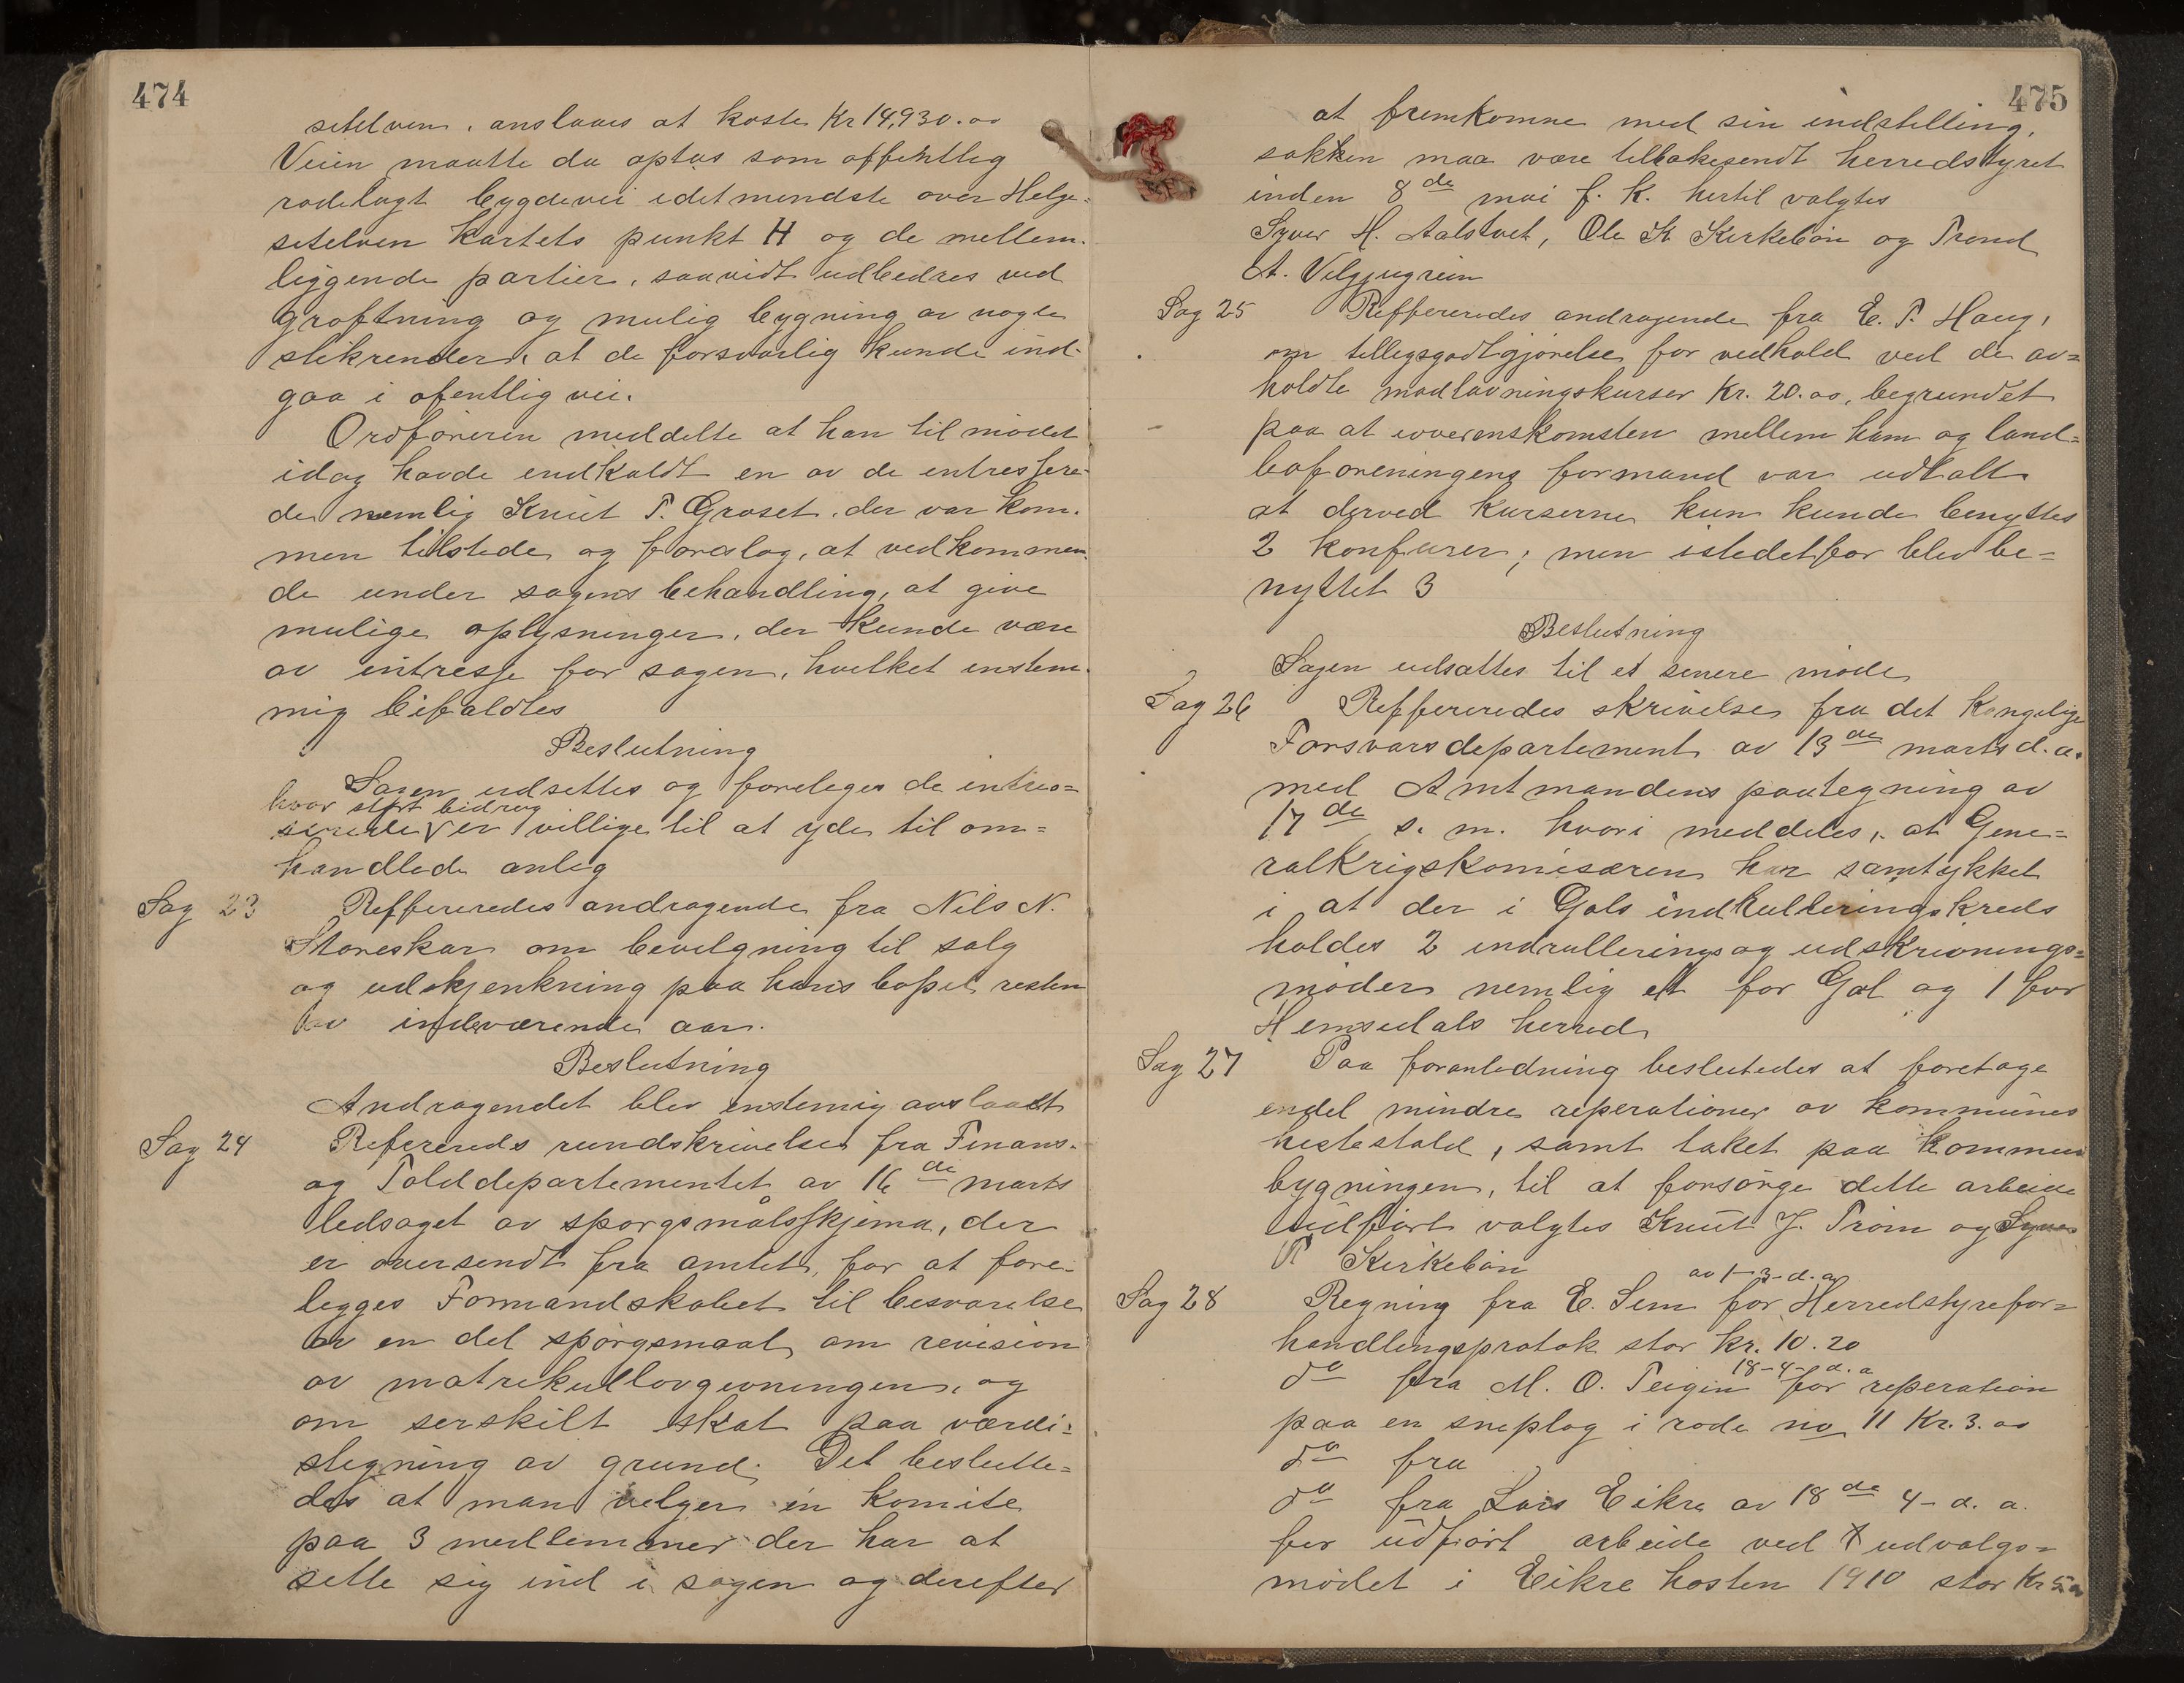 474
setelven, anslaaes at koste Kr 14,930.00
Veien maatte da optas som offentlig
rodelagt bygdevei idetmindste over Helge-
setelven kartets punkt H og de mellem-
liggende partier, saavidt udbedres ved
grøftning og mulig bygning av nogle
stikrender, at de forsvarlig kunde ind-
gaa i ofentlig vei.
Ordføreren meddelte at han til mødet
idag havde endkaldt en av de entressere-
de nemlig Knut T. Grøset, der var kom-
men tilstede og foreslog, at vedkommen-
de under sagens behandling, at give
mulige oplysninger, der kunde være
av intresse for sagen, hvilket enstem-
mig bifaldtes
Beslutning
Sagen udsettes og foreleges de intres=
hvor stort bidrag
serede V er villige til at yde til om=
handlede anleg
Sag 23 Reffereredes andragende fra Nils N.
Storeskar om bevilgning til salg
og udskjenkning paa hans bopel resten
av indeværende aar.
Beslutning
Andragendet blev enstemig avslaaet
Sag 24 Referereds rundskrivelse fra Finans-
og Tolddepartementet av 16 de marts
ledsaget av sporgsmålsskjema, der
er oversendt fra amtet, for at fore-
legges Formandskabet til besvarelse
av en del spørgsmaal om revision
av matrikullovgevningen, og
om serskilt skat paa værdi-
stegning av grund. Det beslutte=
des at man velger en komite
paa 3 medlemmer der har at
sette sig ind i sagen og derefter
475
at fremkomme med sin indstilling,
sakken maa være tilbakesendt herredstyret
inden 8 de mai f. k. hertil valgtes
Syver H. Aalstvet, Ole K Kirkebøn og Trond
A. Velgjugrein
Sag 25 Reffereredes andragende fra E. T. Haug,
om tillegsgodtgjørelse for vedhold ved de av=
holdte madlavningskurser Kr. 20.00, begrundet
paa at overenskomsten mellem ham og land=
boforeningens formand var udtalt
at derved kurserne kun kunde benyttes
2 konfurer; men istedetfor blev be=
nyttet 3
Beslutning
Sagen udsattes til et senere møde
Sag 26 Reffereredes skrivelse fra det Kongelige
Forsvarsdepartement av 13 de marts d.a.
med Amtmandens paategning av
17 de s. m. hvori meddeles, at Gene=
ralkrigskomisæren har samtykket
i at der i Gols indrulleringskreds
holdes 2 indrullerings og udskrivnings=
møder nemlig et for Gol og 1 for
Hemsedals herred
Sag 27 Paa foranledning beslutedes at foretage
endel mindre reperationer av kommunes
hestestald, samt taket paa kommun
bygningen, til at forsørge dette arbeide
udført valgtes Knut J. Trøim og Syver
T Kirkebøn
av 1-3-d.a
Sag 28 Regning fra E. Sem for Herredstyrefor=
handlingsprotok stor kr. 10.20
18-4-d.a
do fra M. O. Teigen for reperation
paa en sneplog i rode no 11 Kr. 3.00
do fra
do fra Lars Eikre av 18 de 4- d. a.
for udført arbeide ved udvalgs=
mødet i Eikre høsten 1910 stor Kr